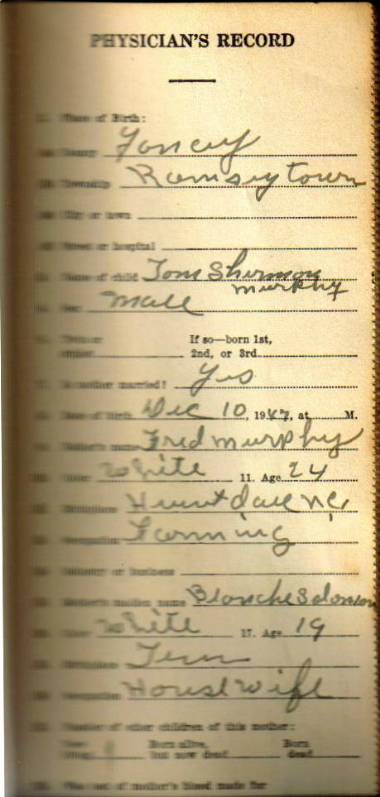 PHYSICIAN'S RECORD
Place of Birth:
County Yancey
Township Ramseytown
City or town
Street or hospital
Name of child Tom Sherman
Murphy
Sex Male
Twin or If so—born 1st,
2nd, or 3rd
Is mother married? Yes
Date of birth Dec 10, 1947, at M.
Father's name Fred Murphy
Color White 11. Age 24
Birthplace Huntdale N.C.
Occupation Farming
Industry or business
Mother's maiden name Blanche
Color White 17. Age 19
Birthplace Tenn
Occupation House Wife
Number of other children of this mother:
Born alive, Born
but now dead dead